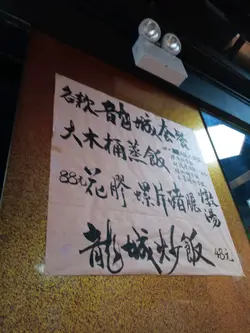 各款龍城套餐
大木桶蒸飯
88元花膠螺片豬𦟌燉湯
龍城炒飯 48元